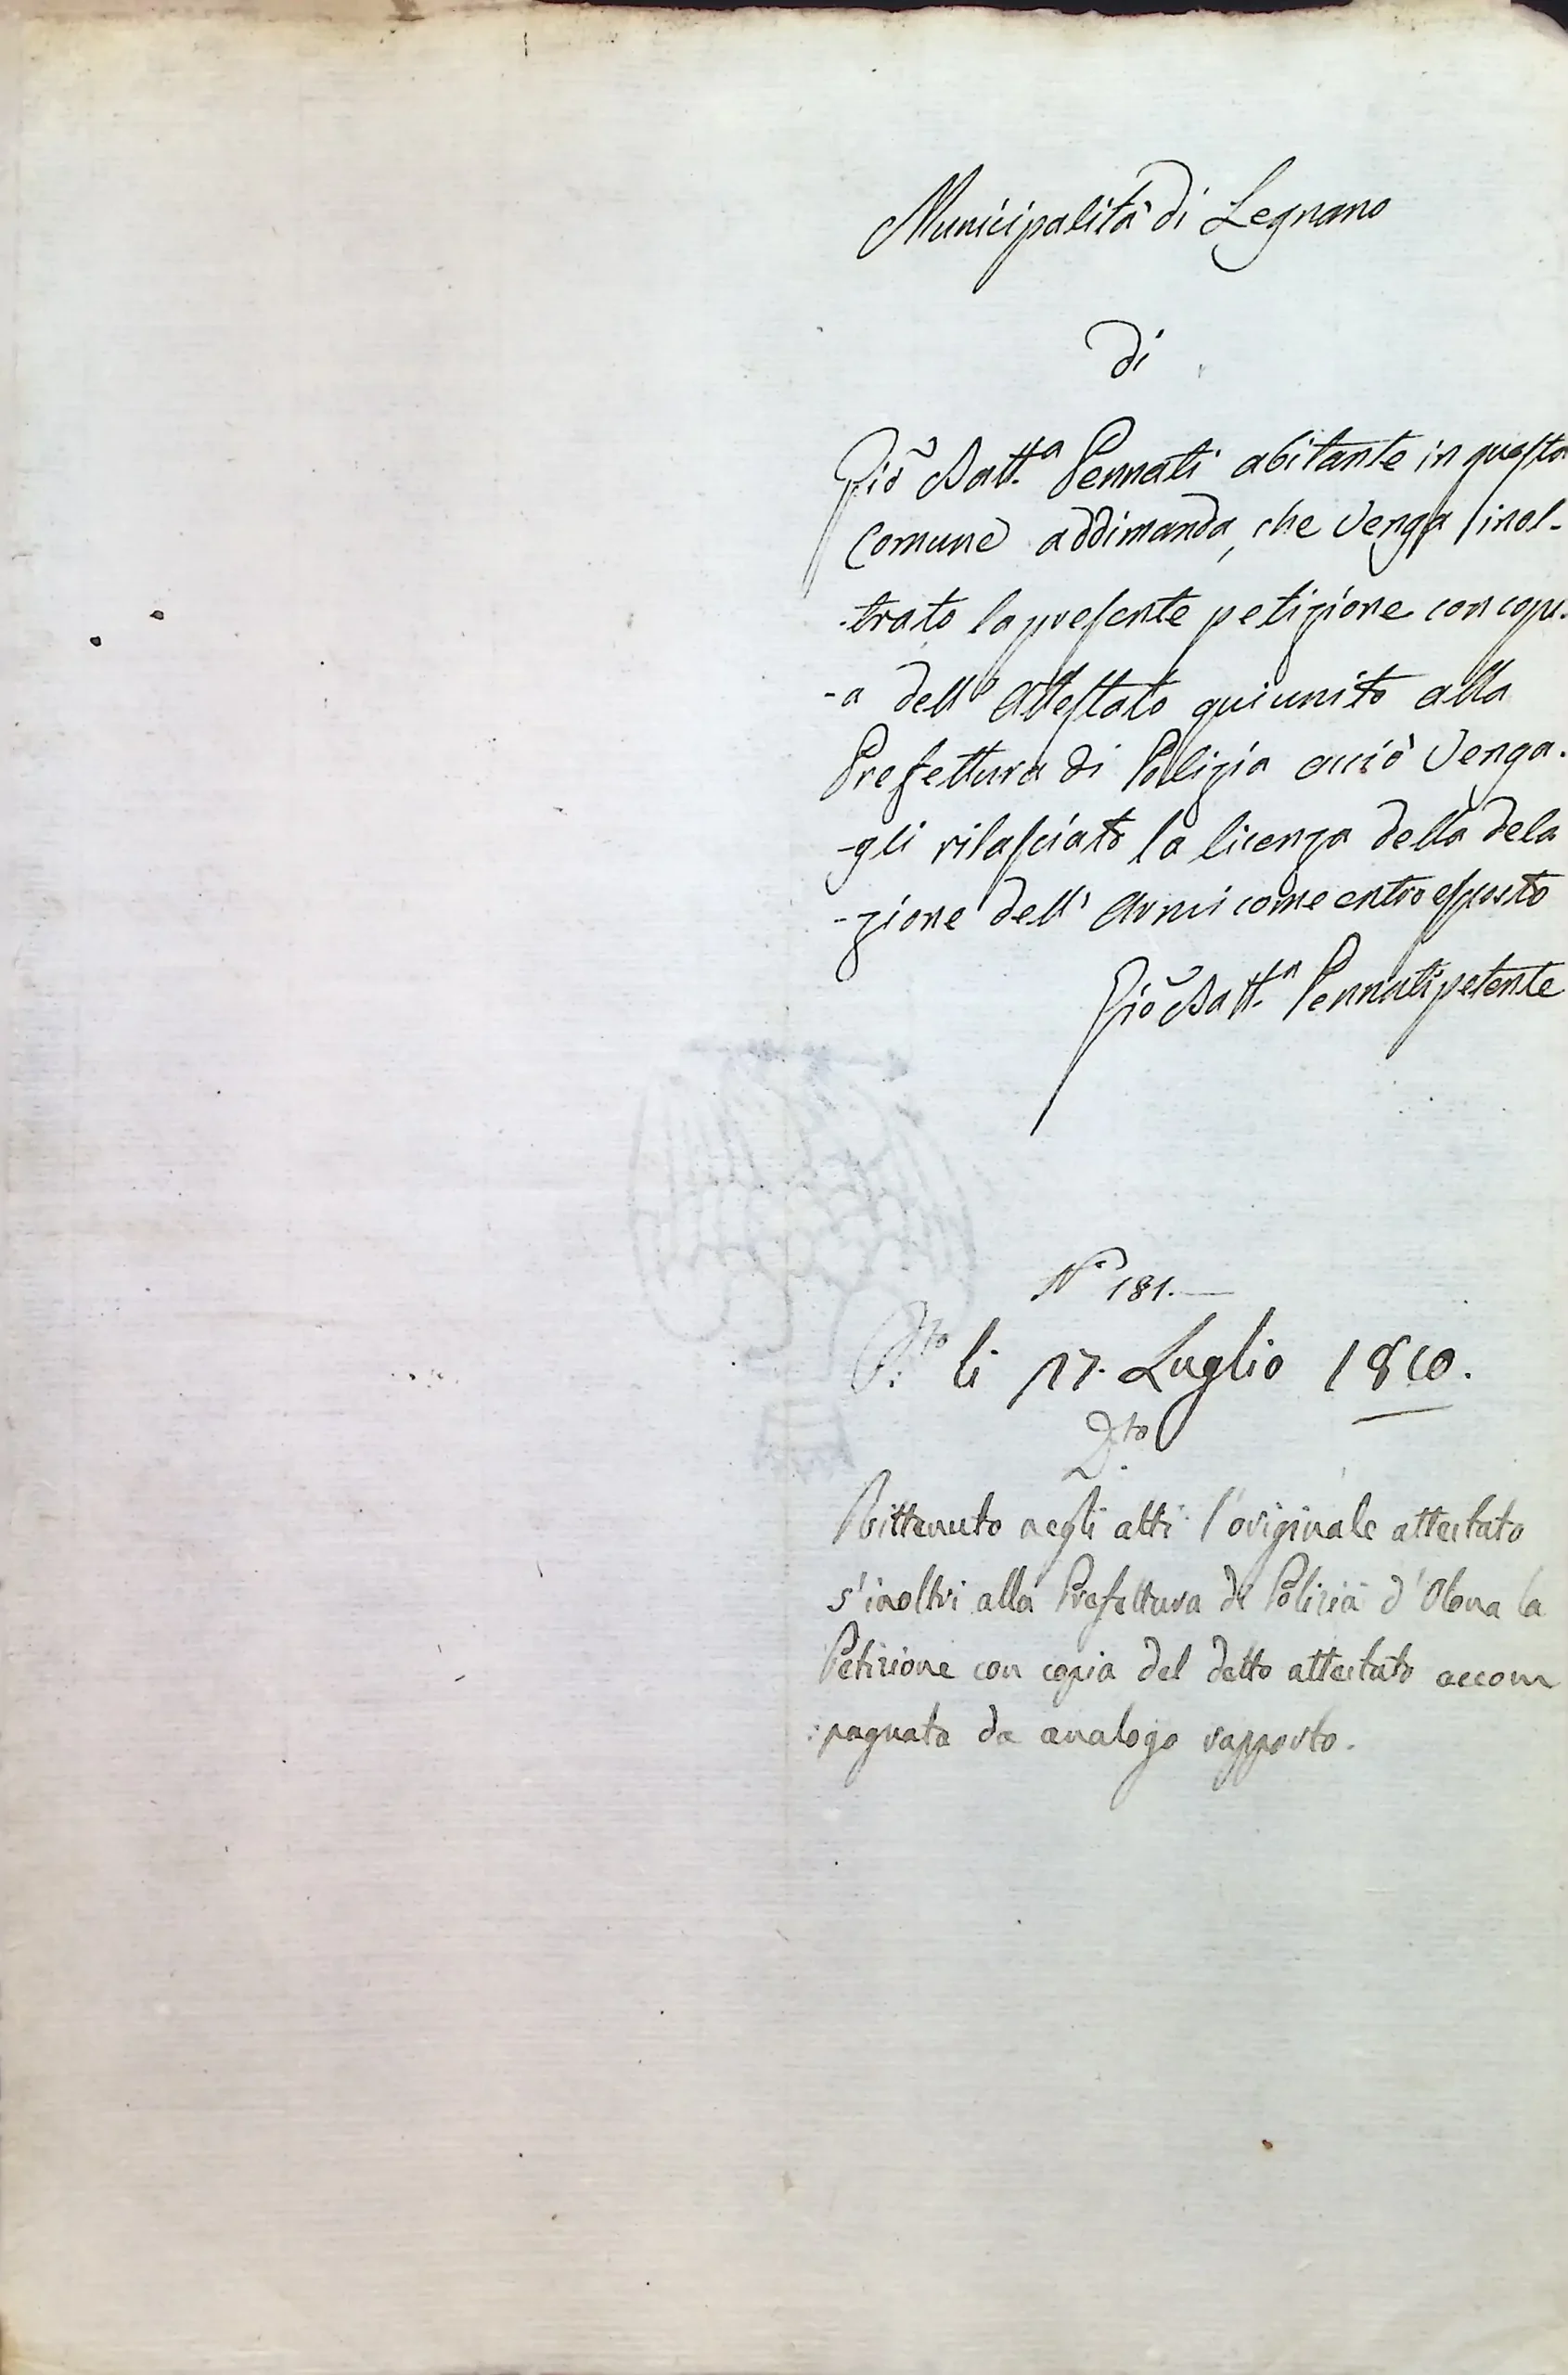 Municipalità di Legnano
di
Gio Batt.a Pennati abitante in questa
Comune addimanda, che venga inol-
-trato la presente petizione con copi-
-a dell' Attestato qui unito alla
Prefettura di Polizia acciò venga-
-gli rilasciato la licenza della dela
-zione dell' Armi come entro esposto
Gio Batt.a Pennati petente
N° 181.
P.to li 17. Luglio 1810.
D.to
Rittenuto negli atti l'originale attestato
s'inoltri alla Prefettura di Polizia d'Olona la
Petizione con copia del detto attestato accom
:pagnata da analogo rapporto.